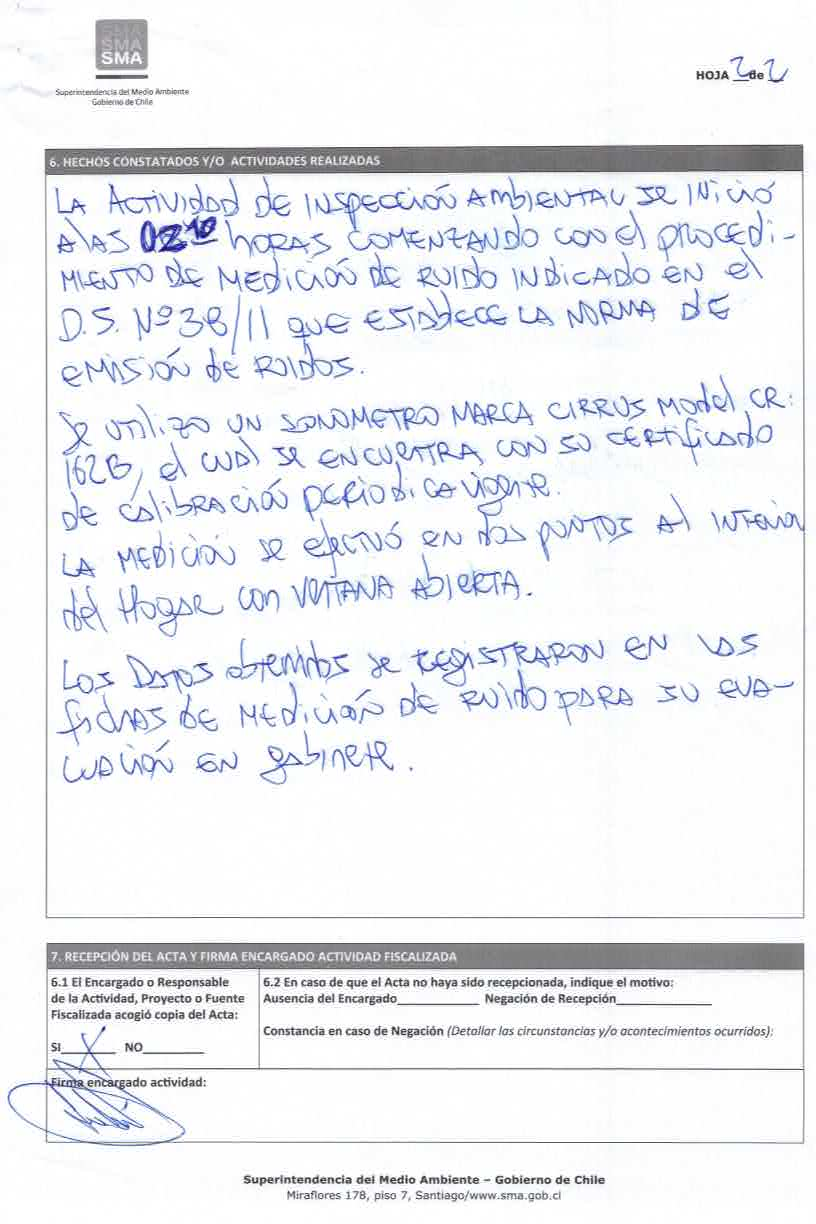 SMA
SMA
SMA
Superintendencia del Medio Ambiente
Gobierno de Chile
HOJA 2 de 2
6. HECHOS CONSTATADOS Y/O ACTIVIDADES REALIZADAS
LA ACTIVIDAD DE INSPECCIÓN AMBIENTAL SE INICIÓ
A LAS 02:10 HORAS COMENZANDO CON EL PROCEDI-
MIENTO DE MEDICIÓN DE RUIDO INDICADO EN EL
D.S. Nº 38/11 QUE ESTABLECE LA NORMA DE
EMISIÓN DE RUIDOS.
SE UTILIZO UN SONOMETRO MARCA CIRRUS Model CR:
162B, el CUAL SE ENCUENTRA CON SU CERTIFICADO
DE CALIBRACIÓN PERIODICA VIGENTE.
LA MEDICIÓN SE EFECTUÓ EN DOS PUNTOS AL INTERIOR
del HOGAR CON VENTANA ABIERTA.
LOS DATOS OBTENIDOS SE REGISTRARON EN LAS
FICHAS DE MEDICIÓN DE RUIDO PARA SU EVA-
LUACIÓN EN GABINETE.
7. RECEPCIÓN DEL ACTA Y FIRMA ENCARGADO ACTIVIDAD FISCALIZADA
6.1 El Encargado o Responsable
de la Actividad, Proyecto o Fuente
Fiscalizada acogió copia del Acta:
SI X NO
6.2 En caso de que el Acta no haya sido recepcionada, indique el motivo:
Ausencia del Encargado Negación de Recepción
Constancia en caso de Negación (Detallar las circunstancias y/o acontecimientos ocurridos):
Firma encargado actividad:
Superintendencia del Medio Ambiente – Gobierno de Chile
Miraflores 178, piso 7, Santiago/www.sma.gob.cl